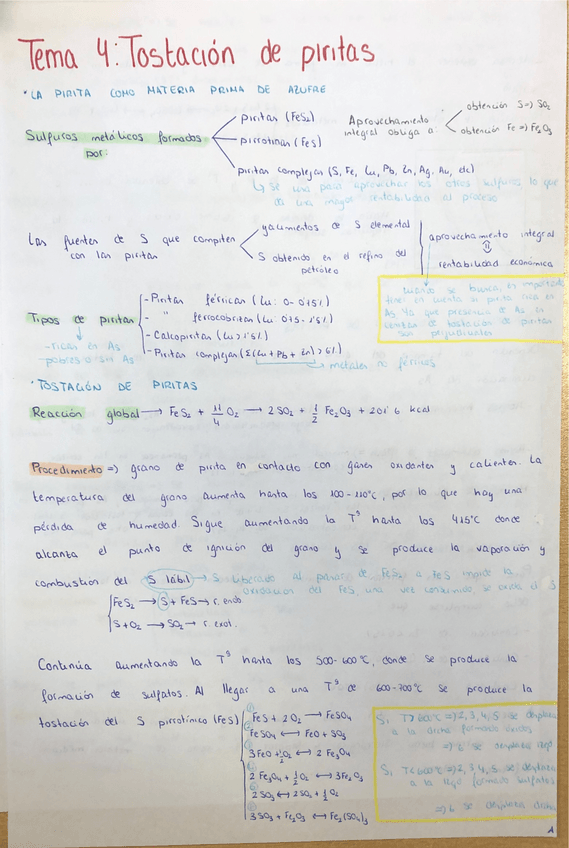 Tema 4: Tostación de piritas
· LA PIRITA COMO MATERIA PRIMA DE AZUFRE
Sulfuros metálicos formados por:
piritas (FeS₂)
pirrotinas (FeS)
piritas complejas (S, Fe, Cu, Pb, Zn, Ag, Au, etc)
Aprovechamiento integral obliga a:
obtención S => SO₂
obtención Fe => Fe₂O₃
↳ Se usa para aprovechar los otros sulfuros lo que
da una mayor rentabilidad al proceso
Las fuentes de S que compiten
con las piritas
yacimientos de S elemental
S obtenido en el refino del
petróleo
aprovechamiento integral
⇓
rentabilidad económica
cuando se busca, es importante
tener en cuenta si pirita rica en
As ya que presencia de As en
cenizas de tostación de piritas
son perjudiciales
Tipos de piritas
- ricas en As
pobres o sin As
- Piritas férricas (Cu: 0-0'5%)
- " ferrocobritas (Cu: 0'5-1'5%)
- Calcopiritas (Cu > 1'5%)
- Piritas complejas (Σ(Cu + Pb + Zn) > 5%)
→ metales no férricos
· TOSTACIÓN DE PIRITAS
Reacción global → FeS₂ + 11/4 O₂ → 2 SO₂ + 1/2 Fe₂O₃ + 201'6 kcal
Procedimiento => grano de pirita en contacto con gases oxidantes y calientes. La
temperatura del grano aumenta hasta los 100-110°C, por lo que hay una
pérdida de humedad. Sigue aumentando la Tª hasta los 415°C donde
alcanza el punto de ignición del grano y se produce la vaporación y
combustion del S lábil → S liberado al pasar de FeS₂ a FeS impide la
oxidación del FeS, una vez consumido, se oxida el S
FeS₂ → S + FeS → r. endo
S + O₂ → SO₂ → r. exot.
Continúa aumentando la Tª hasta los 500-600°C, donde se produce la
formación de sulfatos. Al llegar a una Tª de 600-700°C se produce la
tostación del S pirrotínico (FeS)
① FeS + 2 O₂ → FeSO₄
② FeSO₄ ↔ FeO + SO₃
③ 3 FeO + 1/2 O₂ ↔ 2 Fe₃O₄
④ 2 Fe₃O₄ + 1/2 O₂ ↔ 3 Fe₂O₃
⑤ 2 SO₃ ↔ 2 SO₂ + 1/2 O₂
⑥ 3 SO₃ + Fe₂O₃ ↔ Fe₂(SO₄)₃
Si T > 600°C => 2, 3, 4, 5 se desplaza
a la drcha formado óxidos
=> 6 se desplaza izq
Si T < 600°C => 2, 3, 4, 5 se desplaza
a la izqa formado sulfatos
=> 6 se desplaza drcha
1